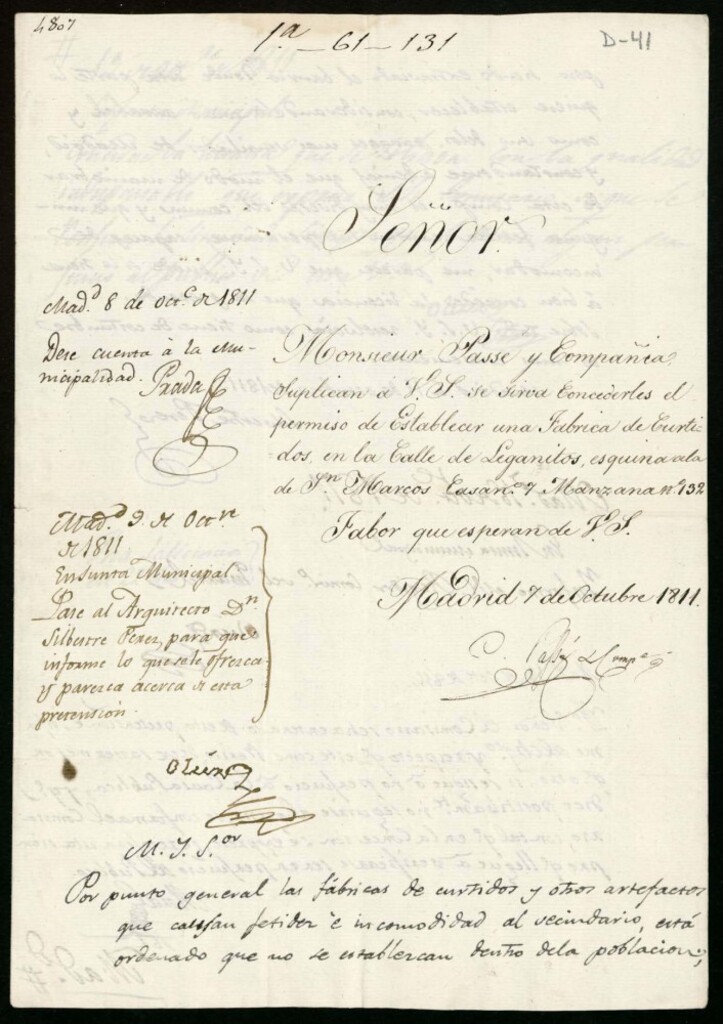 4807
1ª - 61 - 131
D-41
Señor.
Mad.d 8 de oct.e de 1811
Dese cuenta à la Mu-
nicipalidad. Prada
Monsieur Passe y Compañia
Suplican à V.S. se sirva Concederles el
permiso de Establecer una Fabrica de Curti-
dos, en la Calle de Leganitos, esquina ala
de Sn Marcos Casa nº 7 Manzana nº 132
Fabor que esperan de V.S.
Madrid 7 de Octubre 1811.
Mad.d 9. de Oct.re
de 1811
En Junta Municipal.
Pase al Arquitecto Dn
Silbestre Perez, para que
informe lo que sele ofrezca
y parezca acerca de esta
pretensión.
M. Y. S.or
Por punto general las fábricas de curtidos y otros artefactos
que causan fetidez è incomodidad al vecindario, está
ordenado que no se establezcan dentro dela poblacion;